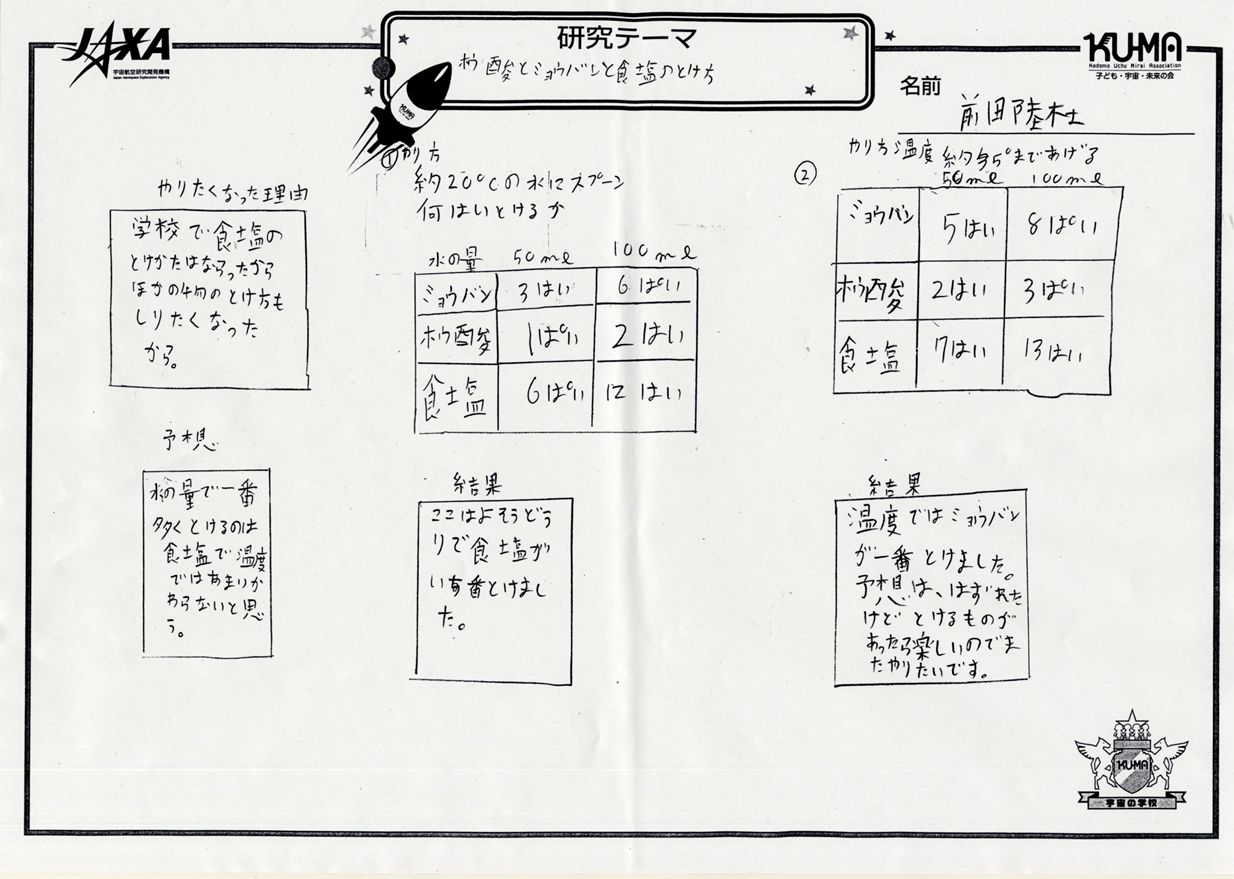 JAXA
宇宙航空研究開発機構
Japan Aerospace Exploration Agency
研究テーマ
ホウ酸とミョウバンと食塩のとけ方
KUMA
KUMA
Kodomo Uchu Mirai Association
子ども・宇宙・未来の会
名前
前田陸杜
やりたくなった理由
学校で食塩の
とけかたはならったから
ほかの物のとけ方も
しりたくなった
から。
予想
水の量で一番
多くとけるのは
食塩で温度
ではあまりか
わらないと思
う。
①やり方
約20℃の水にスプーン
何はいとけるか
水の量 50ml 100ml
ミョウバン 3はい 6ぱい
ホウ酸 1ぱい 2はい
食塩 6ぱい 12はい
結果
ここはよそうどう
りで食塩が
い番とけまし
た。
②
やり方温度約45°まであげる
50ml 100ml
ミョウバン 5はい 8ぱい
ホウ酸 2はい 3ばい
食塩 7はい 13はい
結果
温度ではミョウバン
が一番とけました。
予想は、はずれた
けどとけるものが
あったら楽しいのでま
たやりたいです。
KUMA
宇宙の学校